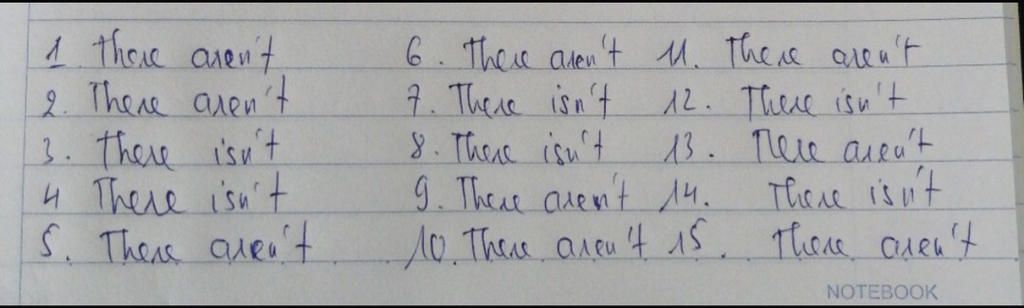 1 There aren't
2. There aren't
3. There isn't
4 There isn't
5. There aren't
6. There aren't
7. There isn't
8. There isn't
9. There aren't
10. There aren't
11. There aren't
12. There isn't
13. There aren't
14. There isn't
15. There aren't
NOTEBOOK